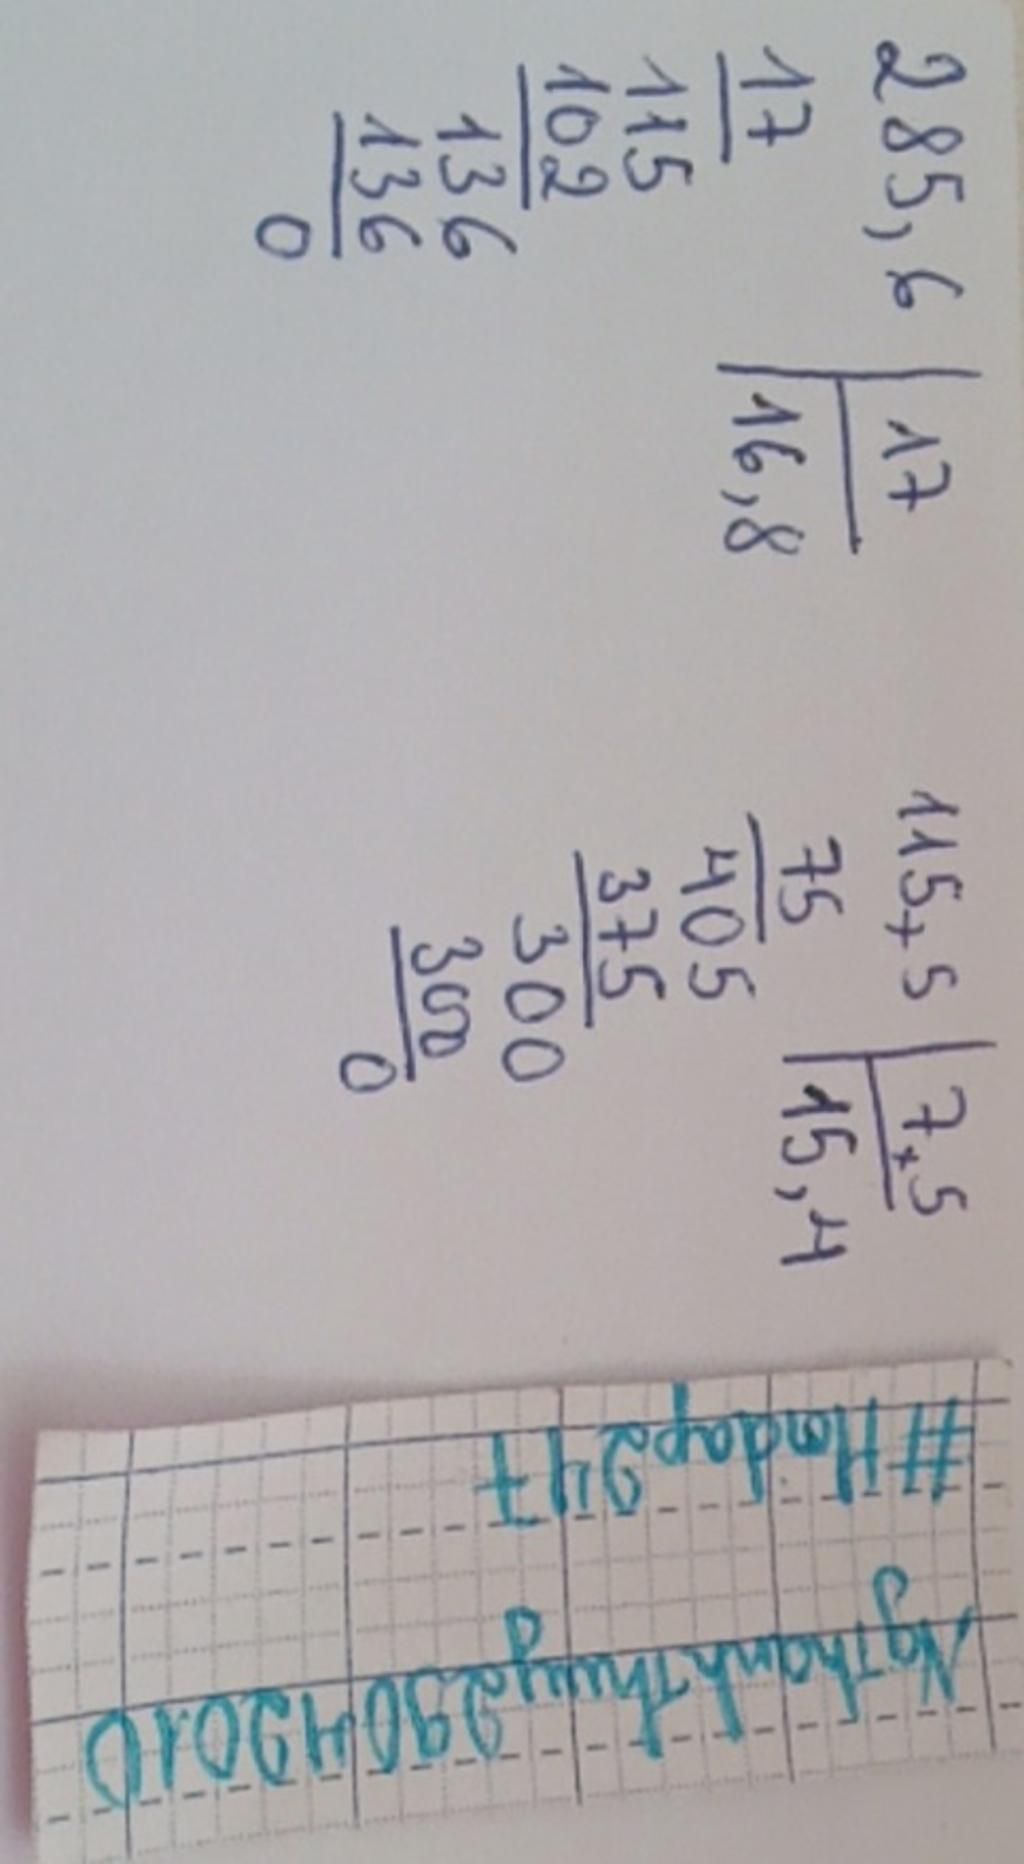 285,6 | 17
17 16,8
115
102
136
136
0
115,5 | 7,5
75 15,4
405
375
300
300
0
#Hoidap247
NgThanhThuy29042010